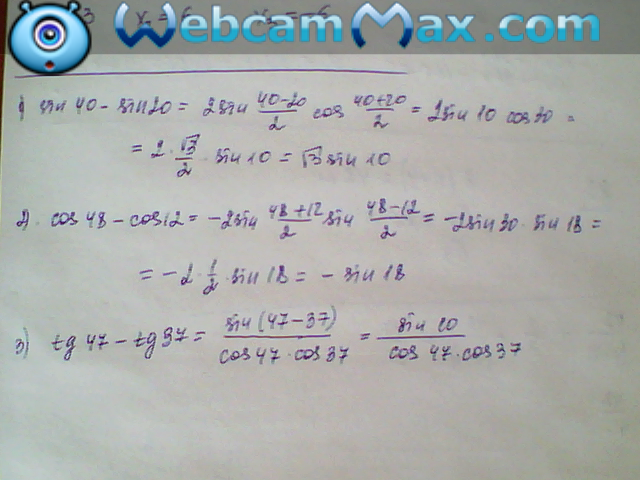 WebcamMax.com
1) sin 40 - sin 20 = 2 sin \frac{40-20}{2} cos \frac{40+20}{2} = 2 sin 10 cos 30 =
= 2 · \frac{√3}{2} · sin 10 = √3 sin 10
2) cos 48 - cos 12 = -2 sin \frac{48+12}{2} sin \frac{48-12}{2} = -2 sin 30 · sin 18 =
= -2 · \frac{1}{2} · sin 18 = - sin 18
3) tg 47 - tg 37 = \frac{sin (47-37)}{cos 47 · cos 37} = \frac{sin 10}{cos 47 · cos 37}